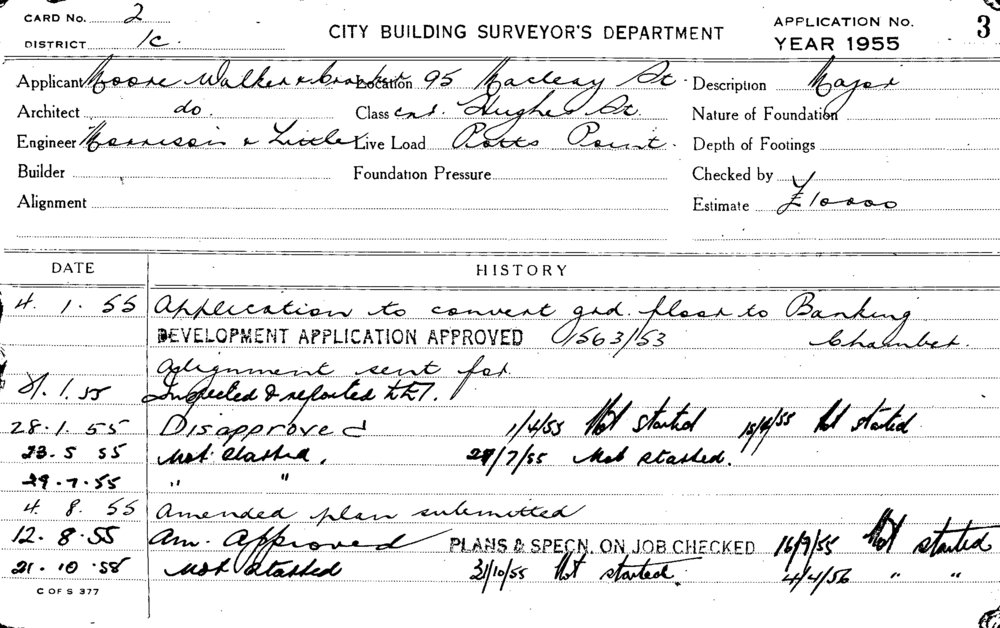 CARD No. 2
DISTRICT 1c.
CITY BUILDING SURVEYOR'S DEPARTMENT
APPLICATION No. 3
YEAR 1955
Applicant Moore Walker & Location 95 Macleay St. Description Major
Architect do. Class cnr. Hughes St. Nature of Foundation
Engineer Morrison & Little Live Load Potts Point. Depth of Footings
Builder Foundation Pressure Checked by
Alignment Estimate £10000
DATE HISTORY
4. 1. 55 Application to convert grd. floor to Banking
DEVELOPMENT APPLICATION APPROVED 1563/53 Chamber.
Alignment sent for
1. 55 Inspected & reported
28. 1. 55 Disapproved 1/4/55 Not started 15/4/55 Not started
23. 5 55 Not started. 27/7/55 Not started.
29. 7. 55 " "
4. 8. 55 Amended plan submitted
12. 8. 55 Am. Approved PLANS & SPECN. ON JOB CHECKED 16/9/55 Not started
21. 10. 55 Not started 31/10/55 Not started. 4/4/56 " "
C OF S 377